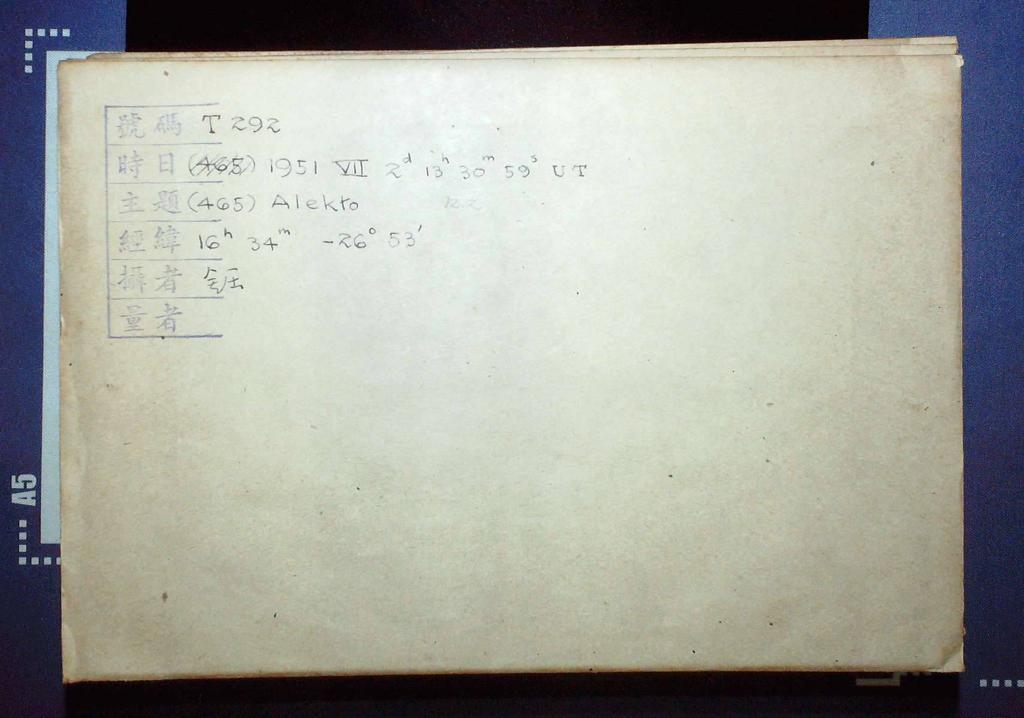 號碼 T 292
時日 (465) 1951 VII 2ᵈ 13ʰ 30ᵐ 59ˢ UT
主題 (465) Alekto
經緯 16ʰ 34ᵐ -26° 53'
攝者
量者
A5